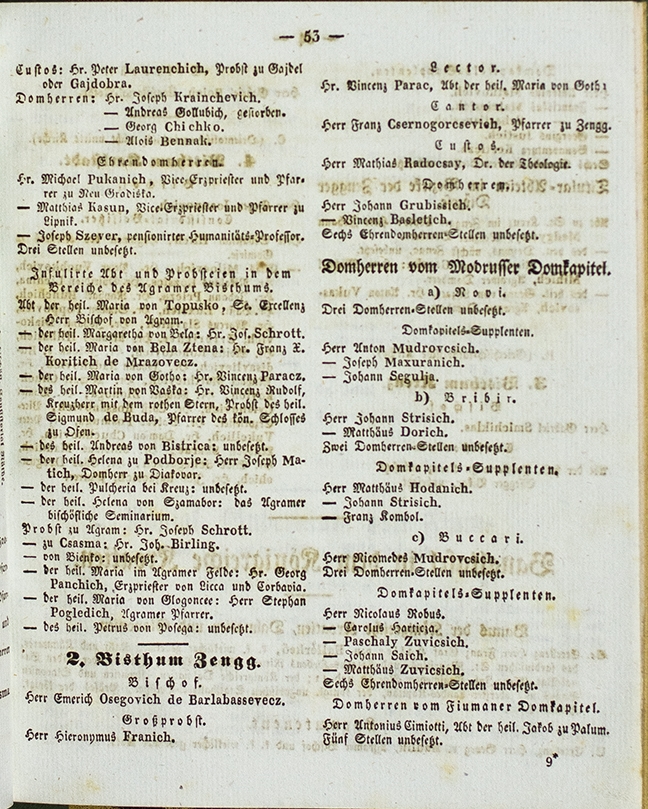 — 53 —
Custos: Hr. Peter Laurenchich, Probst zu Gajdel
oder Gajdobra.
Domherren: Hr. Joseph Krainchevich.
— Andreas Gollubich, gestorben.
— Georg Chichko.
— Alois Bennak.
Ehrendomherren.
Hr. Michael Pukanich, Vice-Erzpriester und Pfar-
rer zu Neu Gradiska.
— Matthias Kasun, Vice-Erzpriester und Pfarrer zu
Lipnik.
— Joseph Szever, pensionirter Humanitäts-Professor.
Drei Stellen unbesetzt.
Infulirte Abt und Probsteien in dem
Bereiche des Agramer Bisthums.
Abt der heil. Maria von Topusko, Se. Excellenz
Herr Bischof von Agram.
— der heil. Margaretha von Bela: Hr. Jos. Schrott.
— der heil. Maria von Bela Ztena: Hr. Franz X.
Koritich de Mrazovecz.
— der heil. Maria von Gotho: Hr. Vincenz Paracz.
— des heil. Martin von Vaska: Hr. Vincenz Rudolf,
Kreuzherr mit dem rothen Stern, Probst des heil.
Sigmund de Buda, Pfarrer des kön. Schlosses
zu Ofen.
— des heil. Andreas von Bistrica: unbesetzt.
— der heil. Helena zu Podborje: Herr Joseph Ma-
tich, Domherr zu Diakovar.
— der heil. Pulcheria bei Kreuz: unbesetzt.
— der heil. Helena von Szamabor: das Agramer
bischöfliche Seminarium.
Probst zu Agram: Hr. Joseph Schrott.
— zu Csasma: Hr. Joh. Birling.
— von Bienko: unbesetzt.
— der heil. Maria im Agramer Felde: Hr. Georg
Panchich, Erzpriester von Licca und Corbavia.
— der heil. Maria von Glogoncee: Herr Stephan
Pogledich, Agramer Pfarrer.
— des heil. Petrus von Posega: unbesetzt.
2. Bisthum Zengg.
Bischof.
Herr Emerich Osegovich de Barlabassevecz.
Großprobst.
Herr Hieronymus Franich.
Lector.
Hr. Vincenz Parac, Abt der heil. Maria von Goth:
Cantor.
Herr Franz Csernogorcsevich, Pfarrer zu Zengg.
Custos.
Herr Mathias Radocsay, Dr. der Theologie.
Domherren.
Herr Johann Grubissich.
— Vincenz Basletich.
Sechs Ehrendomherren-Stellen unbesetzt.
Domherren vom Modrusser Domkapitel.
a) Novi.
Drei Domherren-Stellen unbesetzt.
Domkapitels-Supplenten.
Herr Anton Mudrovcsich.
— Joseph Maxuranich.
— Johann Segulja.
b) Bribir.
Herr Johann Strisich.
— Matthäus Dorich.
Zwei Domherren-Stellen unbesetzt.
Domkapitels-Supplenten.
Herr Matthäus Hodanich.
— Johann Strisich.
— Franz Kombol.
c) Buccari.
Herr Nicomedes Mudrovcsich.
Drei Domherren-Stellen unbesetzt.
Domkapitels-Supplenten.
Herr Nicolaus Robus.
— Carolus Harticza.
— Paschaly Zuvicsich.
— Johann Saich.
— Matthäus Zuvicsich.
Sechs Ehrendomherren-Stellen unbesetzt.
Domherren vom Fiumaner Domkapitel.
Herr Antonius Cimiotti, Abt der heil. Jakob zu Palum.
Fünf Stellen unbesetzt.
9*